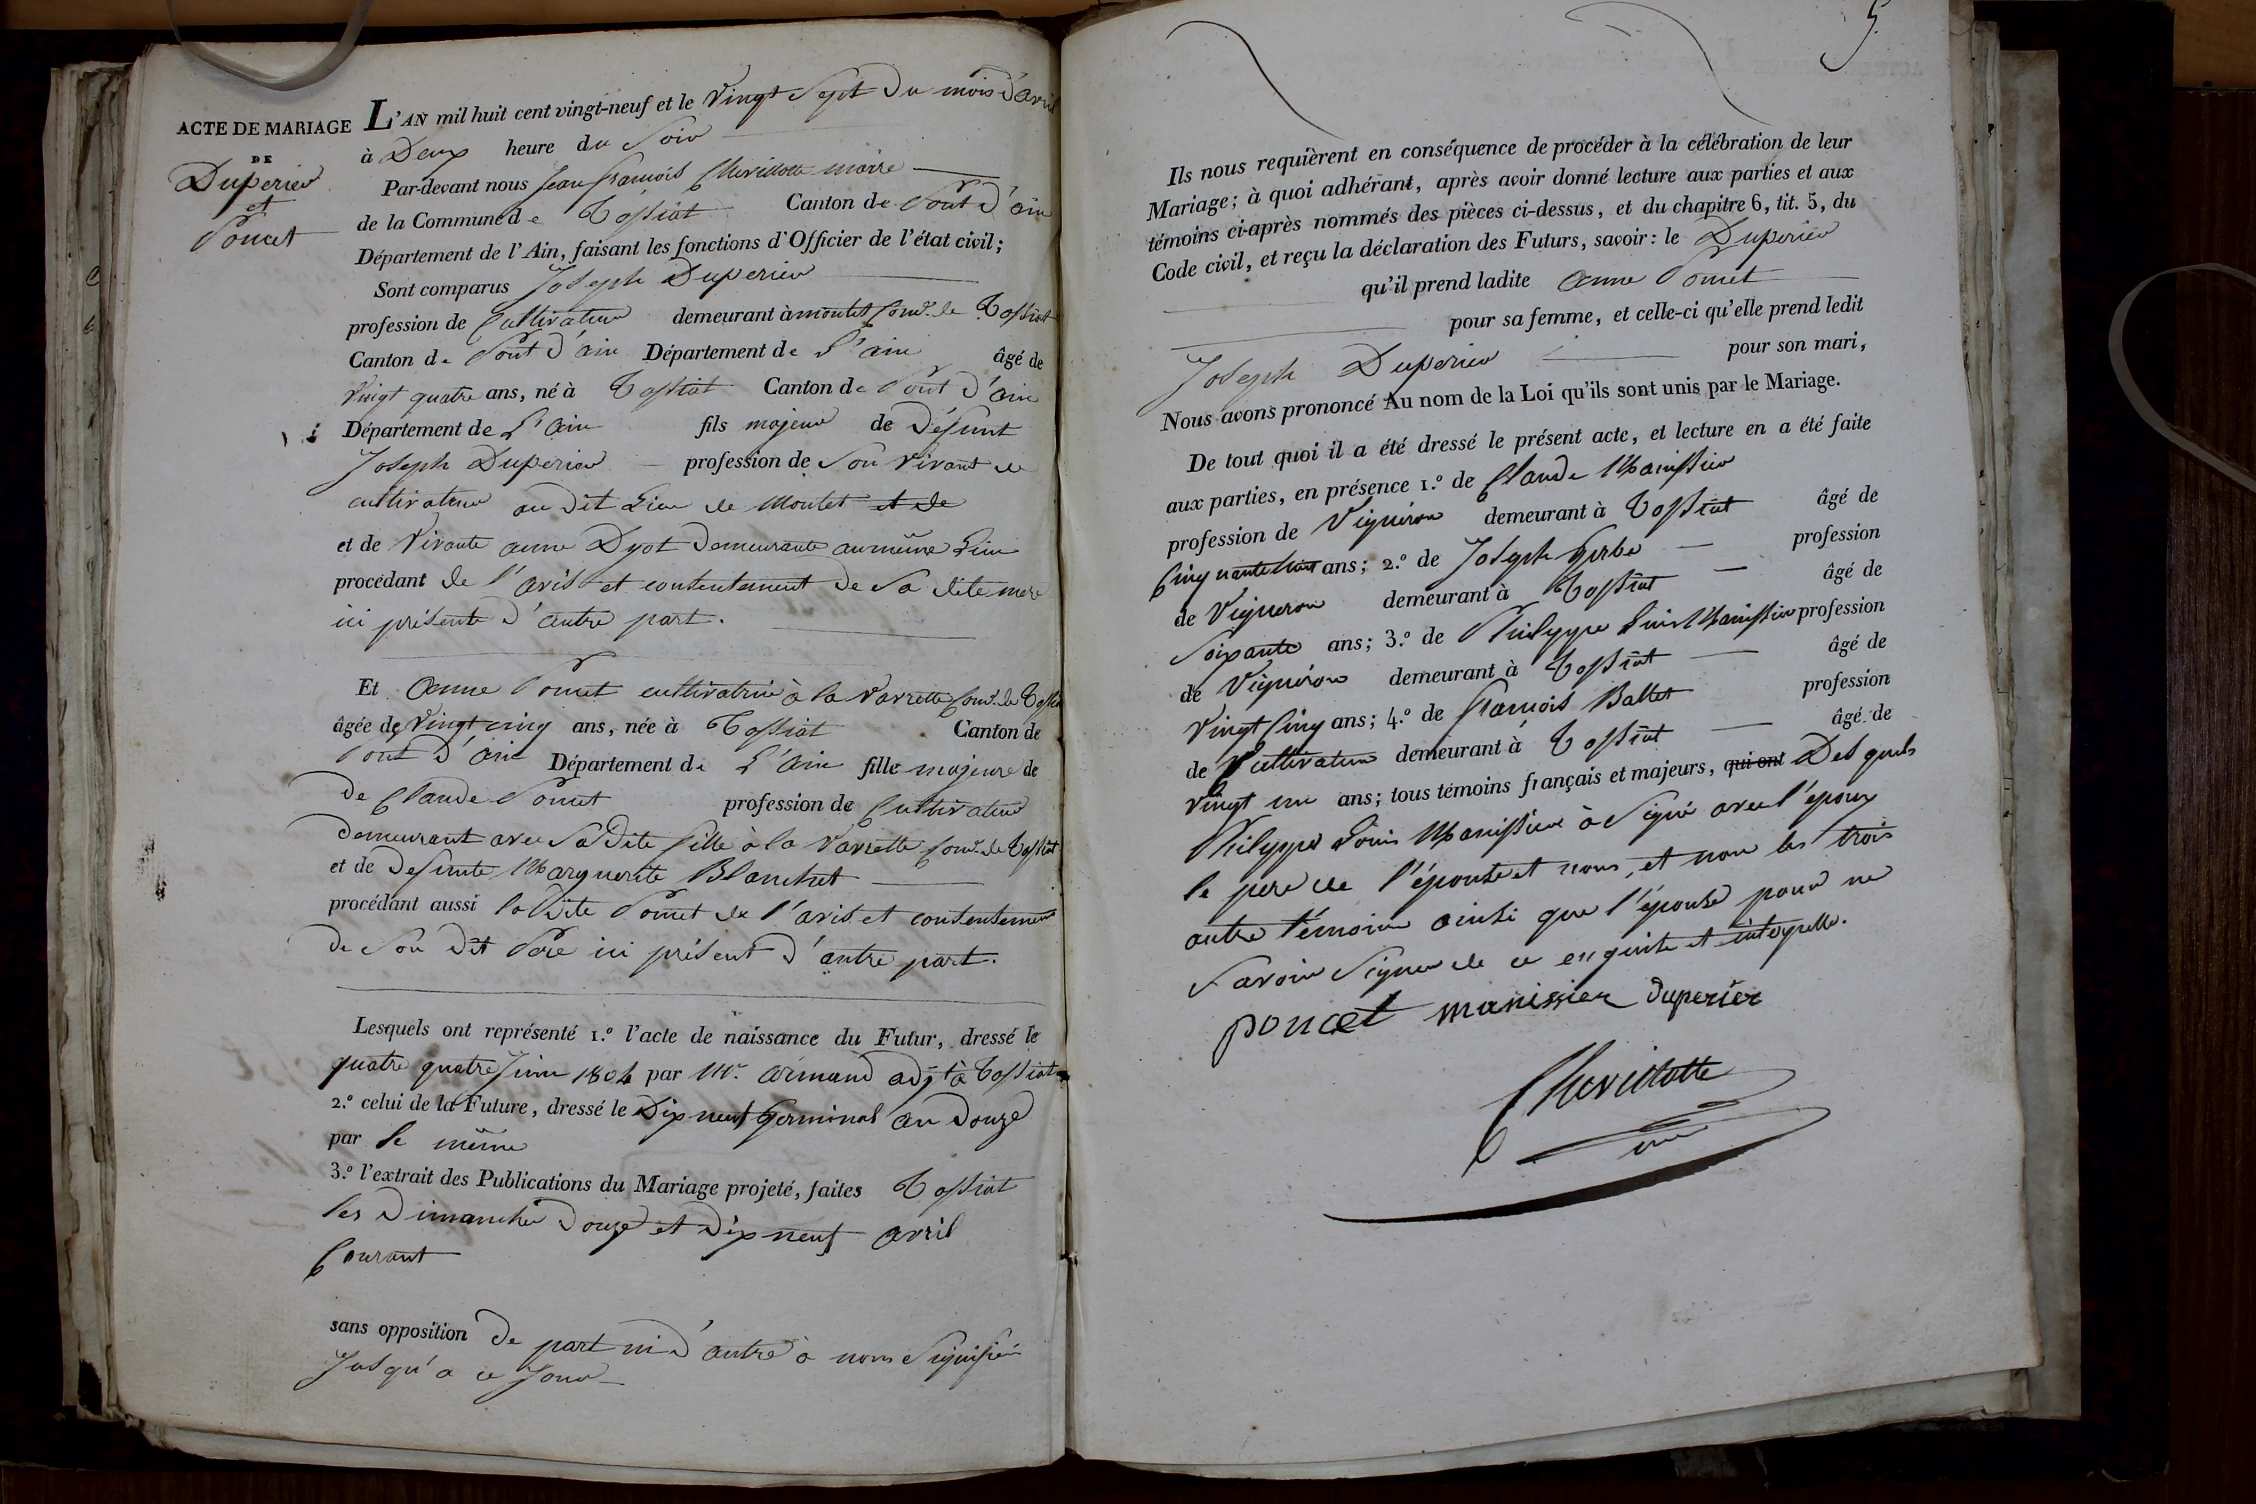 ACTE DE MARIAGE
DE
Duperier
et
Poncet
L'AN mil huit cent vingt-neuf et le Vingt Sept du mois d'avril
à Deux heure du Soir
Par-devant nous Jean françois Chevillotte maire
de la Commune de Tossiat Canton de Pont d'ain
Département de l'Ain, faisant les fonctions d'Officier de l'état civil;
Sont comparus Joseph Duperier
profession de Cultivateur demeurant à montet Comne. de Tossiat
Canton de Pont d'ain Département de L'ain âgé de
Vingt quatre ans, né à Tossiat Canton de Pont d'ain
Département de L'ain fils majeur de Défunt
Joseph Duperier profession de Son Vivant de
cultivateur au dit Lieu de Montet et de
et de Vivante anne Dyot Demeurante au même Lieu
procédant de l'avis et contentement de Sa dite mere
ici présente d'autre part.
Et Anne Poncet cultivatrice à la Varrette Comne. de Tossiat
âgée de Vingt cinq ans, née à Tossiat Canton de
Pont d'ain Département de L'ain fille majeure de
De Claude Poncet profession de Cultivateur
Demeurant avec Sa Dite fille à la Varrette Comne. de Tossiat
et de Defunte Marguerite Blanchet
procédant aussi la Dite Poncet de l'avis et contentement
De Son Dit Pere ici présent d'autre part.
Lesquels ont représenté 1.º l'acte de naissance du Futur, dressé le
quatre quatre Juin 1804 par Mr. armand adjt à Tossiat
2.º celui de la Future, dressé le Dix neuf germinal an Douze
par le même
3.º l'extrait des Publications du Mariage projeté, faites Tossiat
les Dimanche Douze et Dix neuf avril
Courant
sans opposition de part ni d'autre à nous Signifiée
Jusqu'a ce Jour
5.
Ils nous requièrent en conséquence de procéder à la célébration de leur
Mariage; à quoi adhérant, après avoir donné lecture aux parties et aux
témoins ci-après nommés des pièces ci-dessus, et du chapitre 6, tit. 5, du
Code civil, et reçu la déclaration des Futurs, savoir: le Duperier
qu'il prend ladite Anne Poncet
pour sa femme, et celle-ci qu'elle prend ledit
Joseph Duperier pour son mari,
Nous avons prononcé Au nom de la Loi qu'ils sont unis par le Mariage.
De tout quoi il a été dressé le présent acte, et lecture en a été faite
aux parties, en présence 1.º de Claude Manissier
profession de Vigneron demeurant à Tossiat âgé de
Cinquante huit ans; 2.º de Joseph Gerbe profession
de Vigneron demeurant à Tossiat âgé de
Soixante ans; 3.º de Philyppe Louis Manissier profession
de Vigneron demeurant à Tossiat âgé de
Vingt Cinq ans; 4.º de françois Ballet profession
de Cultivateur demeurant à Tossiat âgé de
Vingt un ans; tous témoins français et majeurs, qui ont Des quels
Philyppe Louis Manissier à Signé avec l'époux
le pere de l'épouse et nous, et non les trois
autre témoins ainsi que l'épouse pour ne
Savoir Signer de ce enquis et interpellé.
poncet manissier duperier
Chevillotte